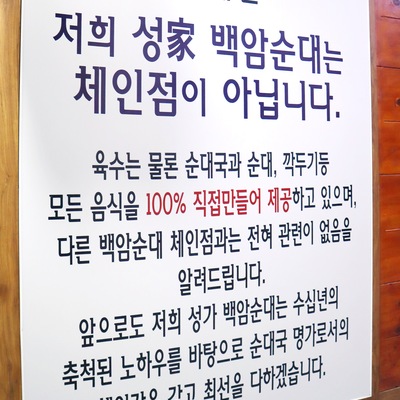 저희 성家 백암순대는
체인점이 아닙니다.
육수는 물론 순대국과 순대, 깍두기등
모든 음식을 100% 직접만들어 제공하고 있으며,
다른 백암순대 체인점과는 전혀 관련이 없음을
알려드립니다.
앞으로도 저희 성가 백암순대는 수십년의
축척된 노하우를 바탕으로 순대국 명가로서의
갖고 최선을 다하겠습니다.